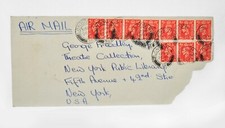 AIR MAIL
George Freedley
Theatre Collection,
New York Public Library
Fifth Avenue & 42nd St
New York,
U.S.A